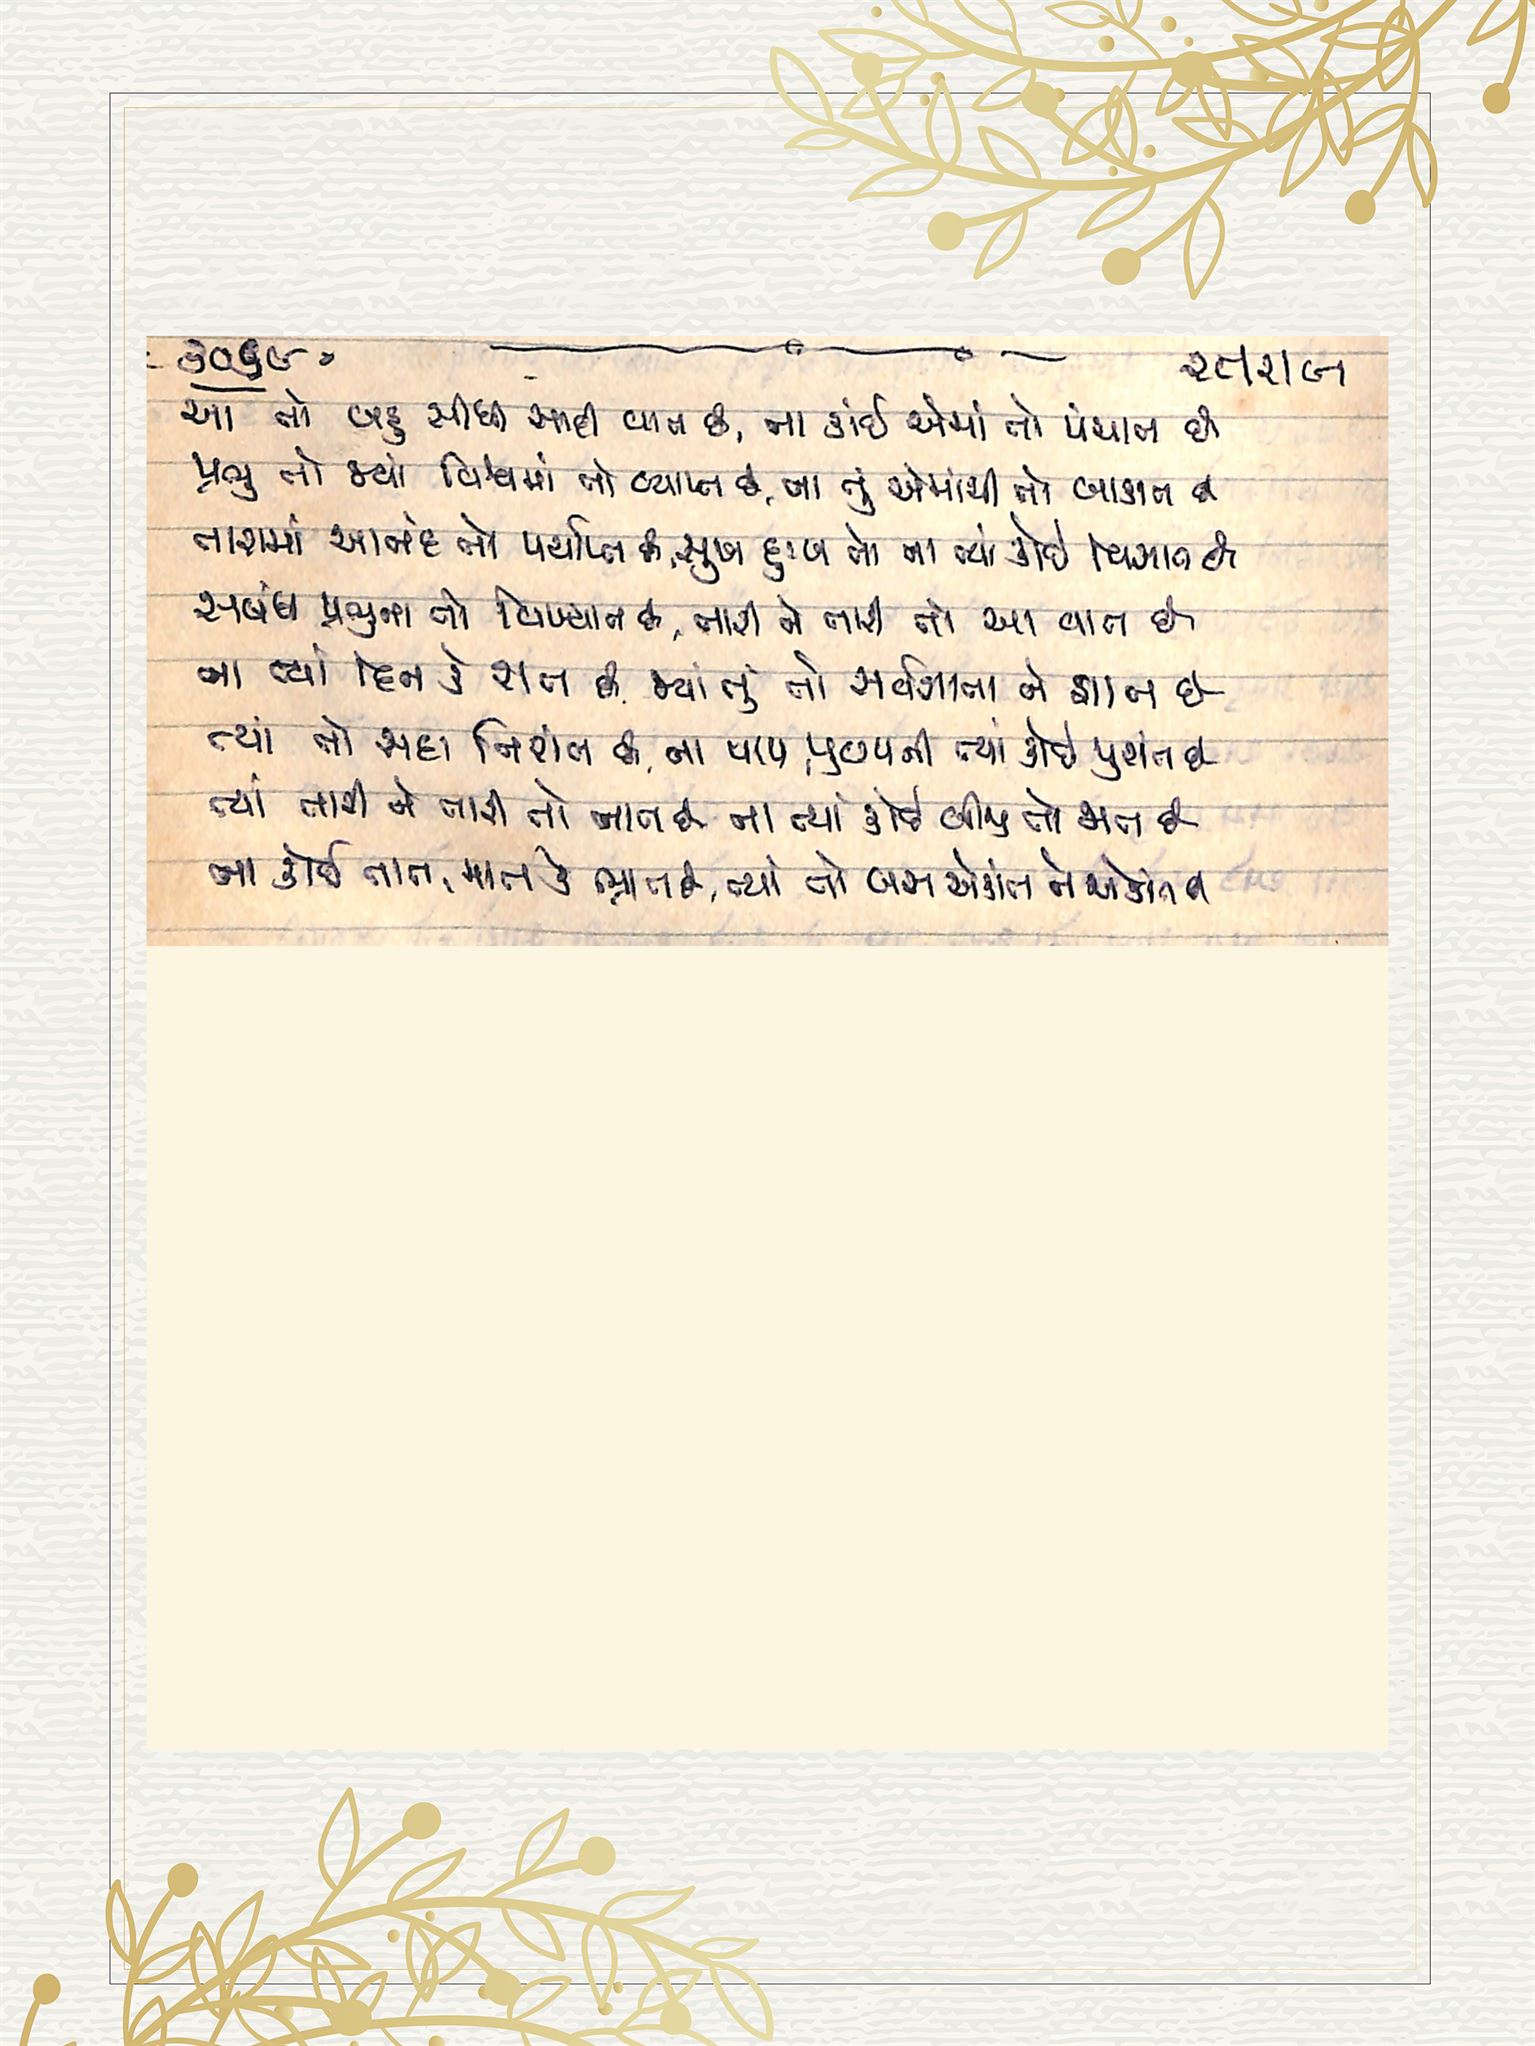 આ તો બહુ સીધી સાદી વાત છે, ના કાંઈ એમાં તો પંચાત છે
પ્રભુ તો જ્યાં વિશ્વમાં તો વ્યાપ્ત છે, ના તું એમાંથી તો બાકાત છે
તારામાં આનંદ તો પર્યાપ્ત છે, સુખ દુઃખ તો ના ત્યાં કોઈ વિસાત છે
સબંધ પ્રભુના તો વિખ્યાત છે, તારી ને તારી તો આ વાત છે
ના ત્યાં દિન કે રાત છે, જ્યાં તું તો સર્વજ્ઞાતા ને જ્ઞાત છે
ત્યાં તો સદા નિરાંત છે, ના પાપ, પુણ્યની ત્યાં કોઈ પુરાંત છે
ત્યાં તારી ને તારી તો જાત છે ના ત્યાં કોઈ બીજી તો ભાત છે
ના કોઈ તાત, માત કે ભ્રાત છે, ત્યાં તો બસ એકાંત ને એકાંત છે